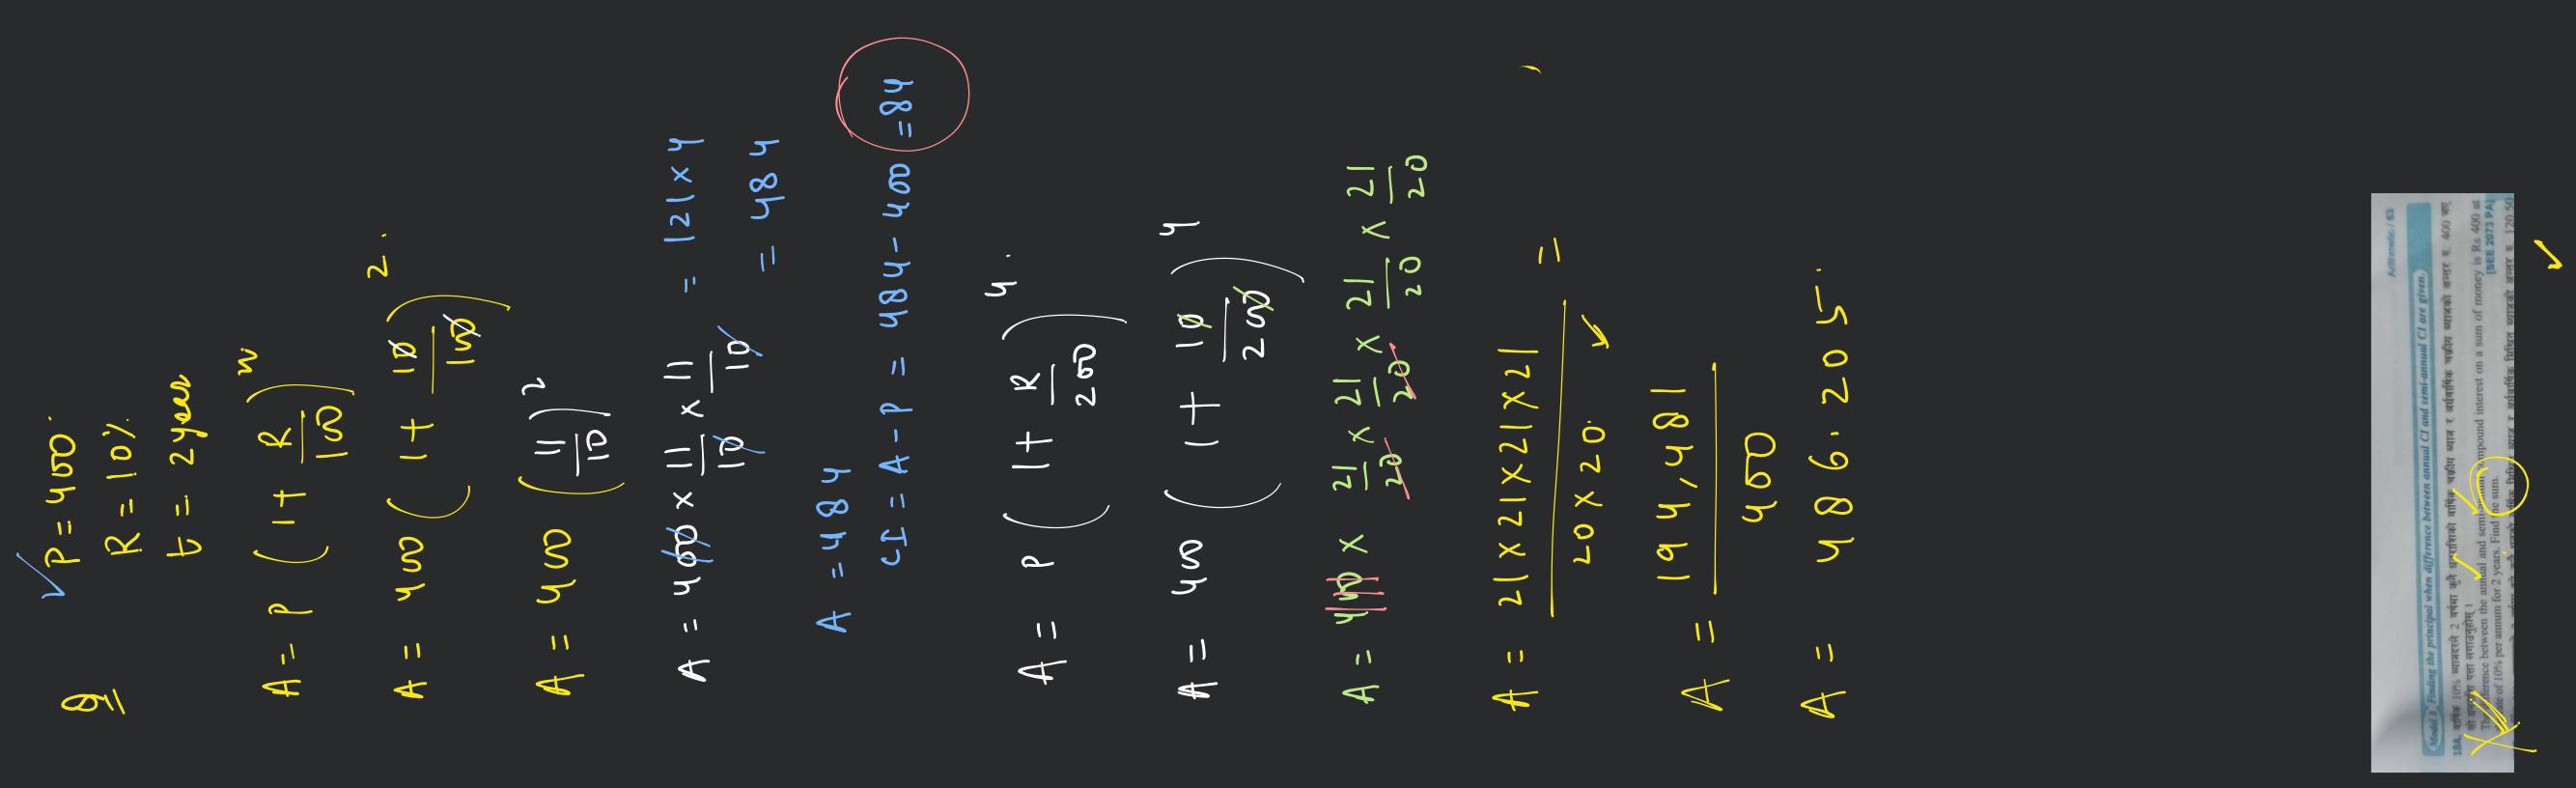 8
P = 400
R = 10%
t = 2 year
A = P ( 1 + R/100 )^n
A = 400 ( 1 + 10/100 )^2
A = 400 ( 11/10 )^2
A = 400 × 11/10 × 11/10 = 121 × 4
= 484
A = 484
CI = A - P = 484 - 400 = 84
A = P ( 1 + R/200 )^4
A = 400 ( 1 + 10/200 )^4
A = 400 × 21/20 × 21/20 × 21/20 × 21/20
A = 21×21×21×21 / 20×20 =
A = 194,481 / 400
A = 486.205
Arithmetic / 63
Model 3 Finding the principal when difference between annual CI and semi-annual CI are given.
18A. वार्षिक 10% ब्याजदरले 2 वर्षमा कुनै धनराशिको वार्षिक चक्रीय ब्याज र अर्धवार्षिक चक्रीय ब्याजको अन्तर रु. 400 भए
पत्ता लगाउनुहोस् ।
between the annual and compound interest on a sum of money is Rs 400 at
of 10% per annum for 2 years. Find the sum. [SEE 2073 PA]